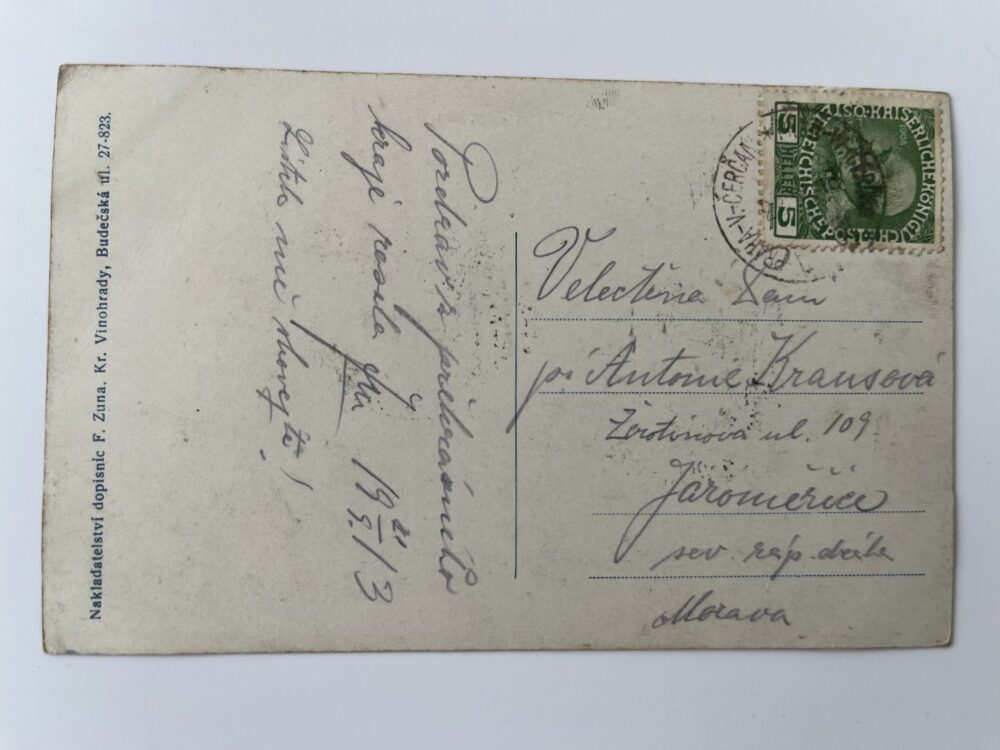 Nakladatelství dopisnic F. Zuna. Kr. Vinohrady, Budečská ul. 27-823.
Pozdrav z překrásného
kraje
19 21/9. 13
KAISERLICHEKÖNIGL
ÖSTERREICHISCHE POST
5 HELLER 5
1908
PRAHA-VI-ČERČAN
Velectěná Paní
pí Antonie Krausová
Žerotínova ul. 109
Jaroměřice
sev. záp. dráha
Morava